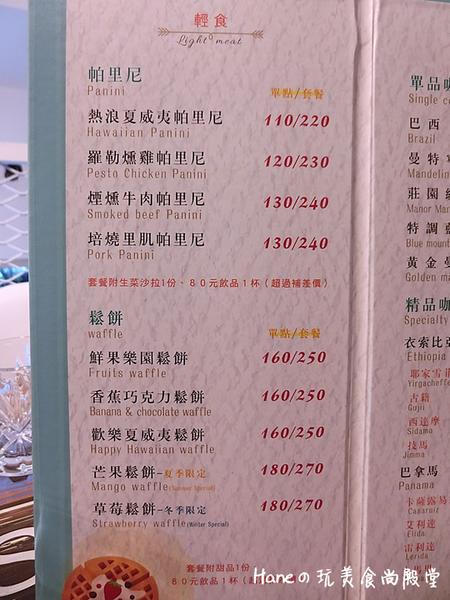 輕食
Light meat
帕里尼
Panini
單點/套餐
熱浪夏威夷帕里尼 110/220
Hawaiian Panini
羅勒燻雞帕里尼 120/230
Pesto Chicken Panini
煙燻牛肉帕里尼 130/240
Smoked beef Panini
焙燒里肌帕里尼 130/240
Pork Panini
套餐附生菜沙拉1份、80元飲品1杯（超過補差價）
鬆餅
waffle
單點/套餐
鮮果樂園鬆餅 160/250
Fruits waffle
香蕉巧克力鬆餅 160/250
Banana & chocolate waffle
歡樂夏威夷鬆餅 160/250
Happy Hawaiian waffle
芒果鬆餅-夏季限定 180/270
Mango waffle(Summer Special)
草莓鬆餅-冬季限定 180/270
Strawberry waffle(Winter Special)
套餐附甜品1份
80元飲品1杯
單品
Single
巴西
Brazil
曼特
莊園
Manor
特調
Blue
黃金
Golden
精品
Specialty
衣索比
Ethiopia
耶家雪
Yirgacheffe
古籍
Guji
西達摩
Sidama
技馬
Jimma
巴拿馬
Panama
卡薩露易
Casaruit
艾利達
Elida
雷利達
Lerida
Haneの玩美食尚殿堂